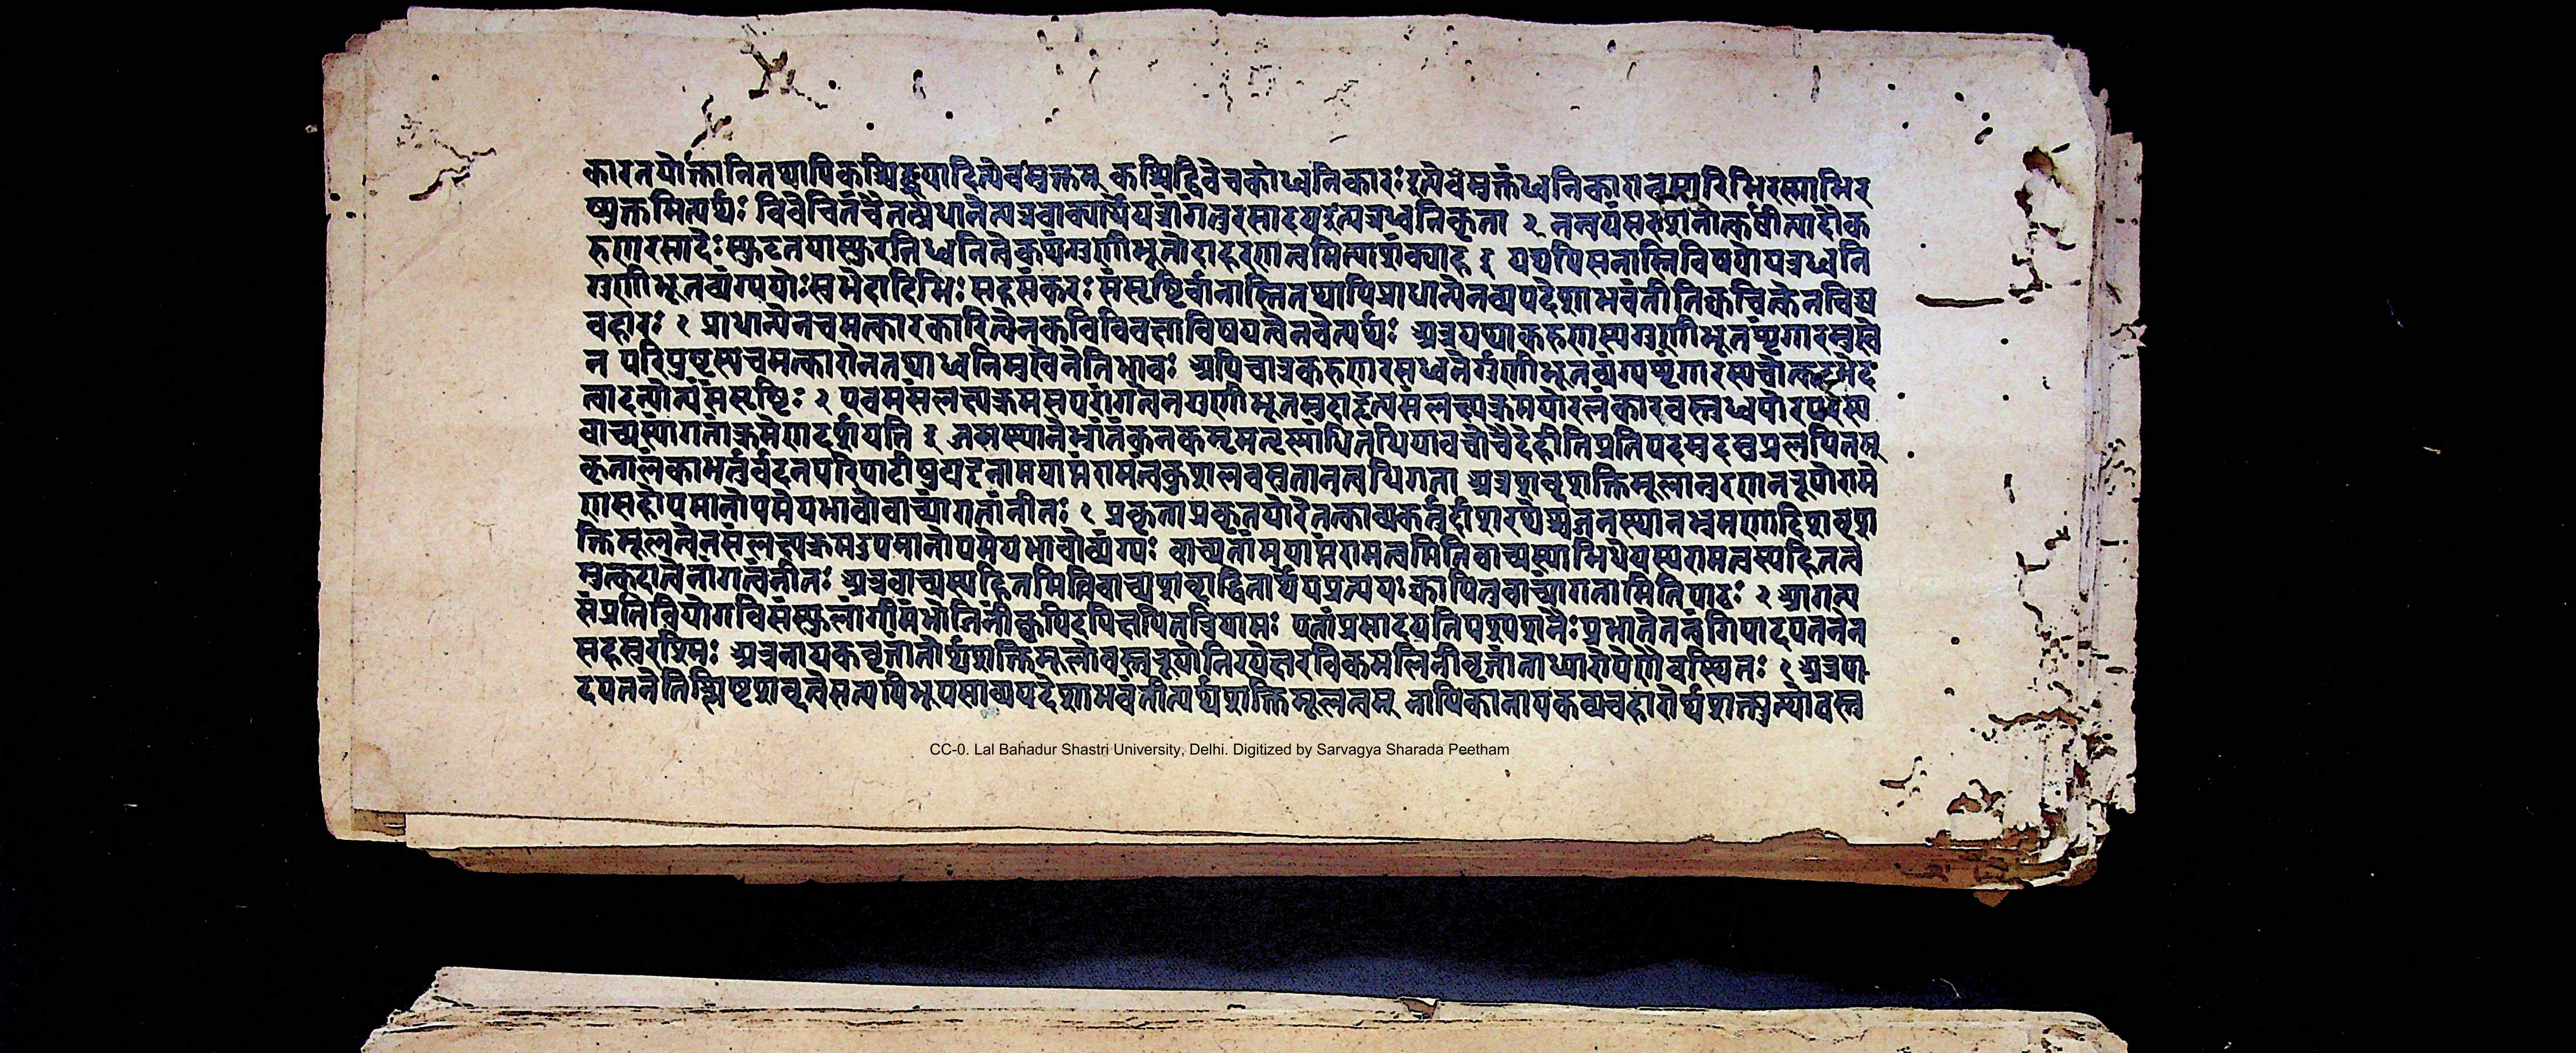 कारतयोक्तानितथापिकश्चिद्ब्रूयादित्येवमुक्तम् कश्चिद्विवेचकोध्वनिकारः इत्येवमुक्तंध्वनिकारानुसारिभिरस्माभिर
प्युक्तमित्यर्थः विवेचितंचैतत्प्रधानेन्यत्रवाक्यार्थेयत्रांगंतुरसादयइत्यत्रध्वनिकृता २ नन्वयंसरशनोत्कर्षीत्यादौक
रुणरसादेःस्फुटतयास्फुरतिध्वनित्वेकथंगुणीभूतोदाहरणत्वमित्याशंक्याह ३ यद्यपिसनास्तिविषयोयत्रध्वनि
गुणीभूतव्यंग्ययोःस्वभेदादिभिः सहसंकरः संसृष्टिर्वानास्तितथापिप्राधान्येनव्यपदेशाभवंतीतिक्वचित्केनचिद्व्य
वहारः १ प्राधान्येनचमत्कारकारित्वेनकविविवक्षाविषयत्वेनवेत्यर्थः अत्रयथाकरुणस्यगुणीभूतशृंगारमुखे
न परिपुष्टस्यचमत्कारोनतथा ध्वनिमुखेनेतिभावः अपिचात्रकरुणरसध्वनेर्गुणीभूतव्यंग्यशृंगारस्यचोत्कटभेद
त्वादन्योन्यंसंसृष्टिः २ एवमसंलक्ष्यक्रमस्यपरांगत्वेनगुणीभूतत्वमुदाहृत्यसंलक्ष्यक्रमयोरलंकारवस्तुध्वन्योरपरस्य
वाच्यस्यांगतांक्रमेणदर्शयति ३ जनस्थानेभ्रांतंकनकमृगतृष्णांधितधियावचोवैदेहीतिप्रतिपदमुदश्रुप्रलपितम्
कृतालंकाभर्तुर्वदनपरिपाटीषुघटनामयाप्तंरामत्वंकुशलवसुतानत्वधिगता अत्रशब्दशक्तिमूलानुरणनरूपोरामे
णसहोपमानोपमेयभावोवाच्यांगतांनीतः १ प्रकृताप्रकृतयोरेतत्काव्यकर्तर्हाशरथेश्चजनस्थानभ्रमणादिशब्दश
क्तिमूलत्वेनसंलक्ष्यक्रमउपमानोपमेयभावोव्यंग्यः वाच्यतांमयाप्तंरामत्वमितिवाच्यस्याभिधेयस्यरामत्वस्यहितत्वे
मुत्कटात्वेनांगत्वंनीतः अत्रवाच्यस्यहितमितिवाच्यशब्दाद्वितार्थेयप्रत्ययः क्वापितुवाच्यांगतामितिपाठः २ आगत्य
संप्रतिवियोगविसंस्थुलांगीमंभोजिनींक्वचिदपिक्षपितत्रियामः एतांप्रसादयतिपश्यशनैःप्रभातेतन्वंगिपादपतनेन
सहस्ररश्मिः अत्रनायकवृत्तांतोर्थशक्तिमूलोवस्तुरूपोनिरपेक्षरविकमलिनीवृत्तांताध्यारोपेणैवस्थितः १ अत्रपा
दपतनेतिश्लिष्टशब्दत्वेसत्यपिभूयसाव्यपदेशाभवंतीत्यर्थशक्तिमूलत्वम् नायिकानायकव्यवहारोर्थशक्त्युत्थोवस्तु
CC-0. Lal Bahadur Shastri University, Delhi. Digitized by Sarvagya Sharada Peetham